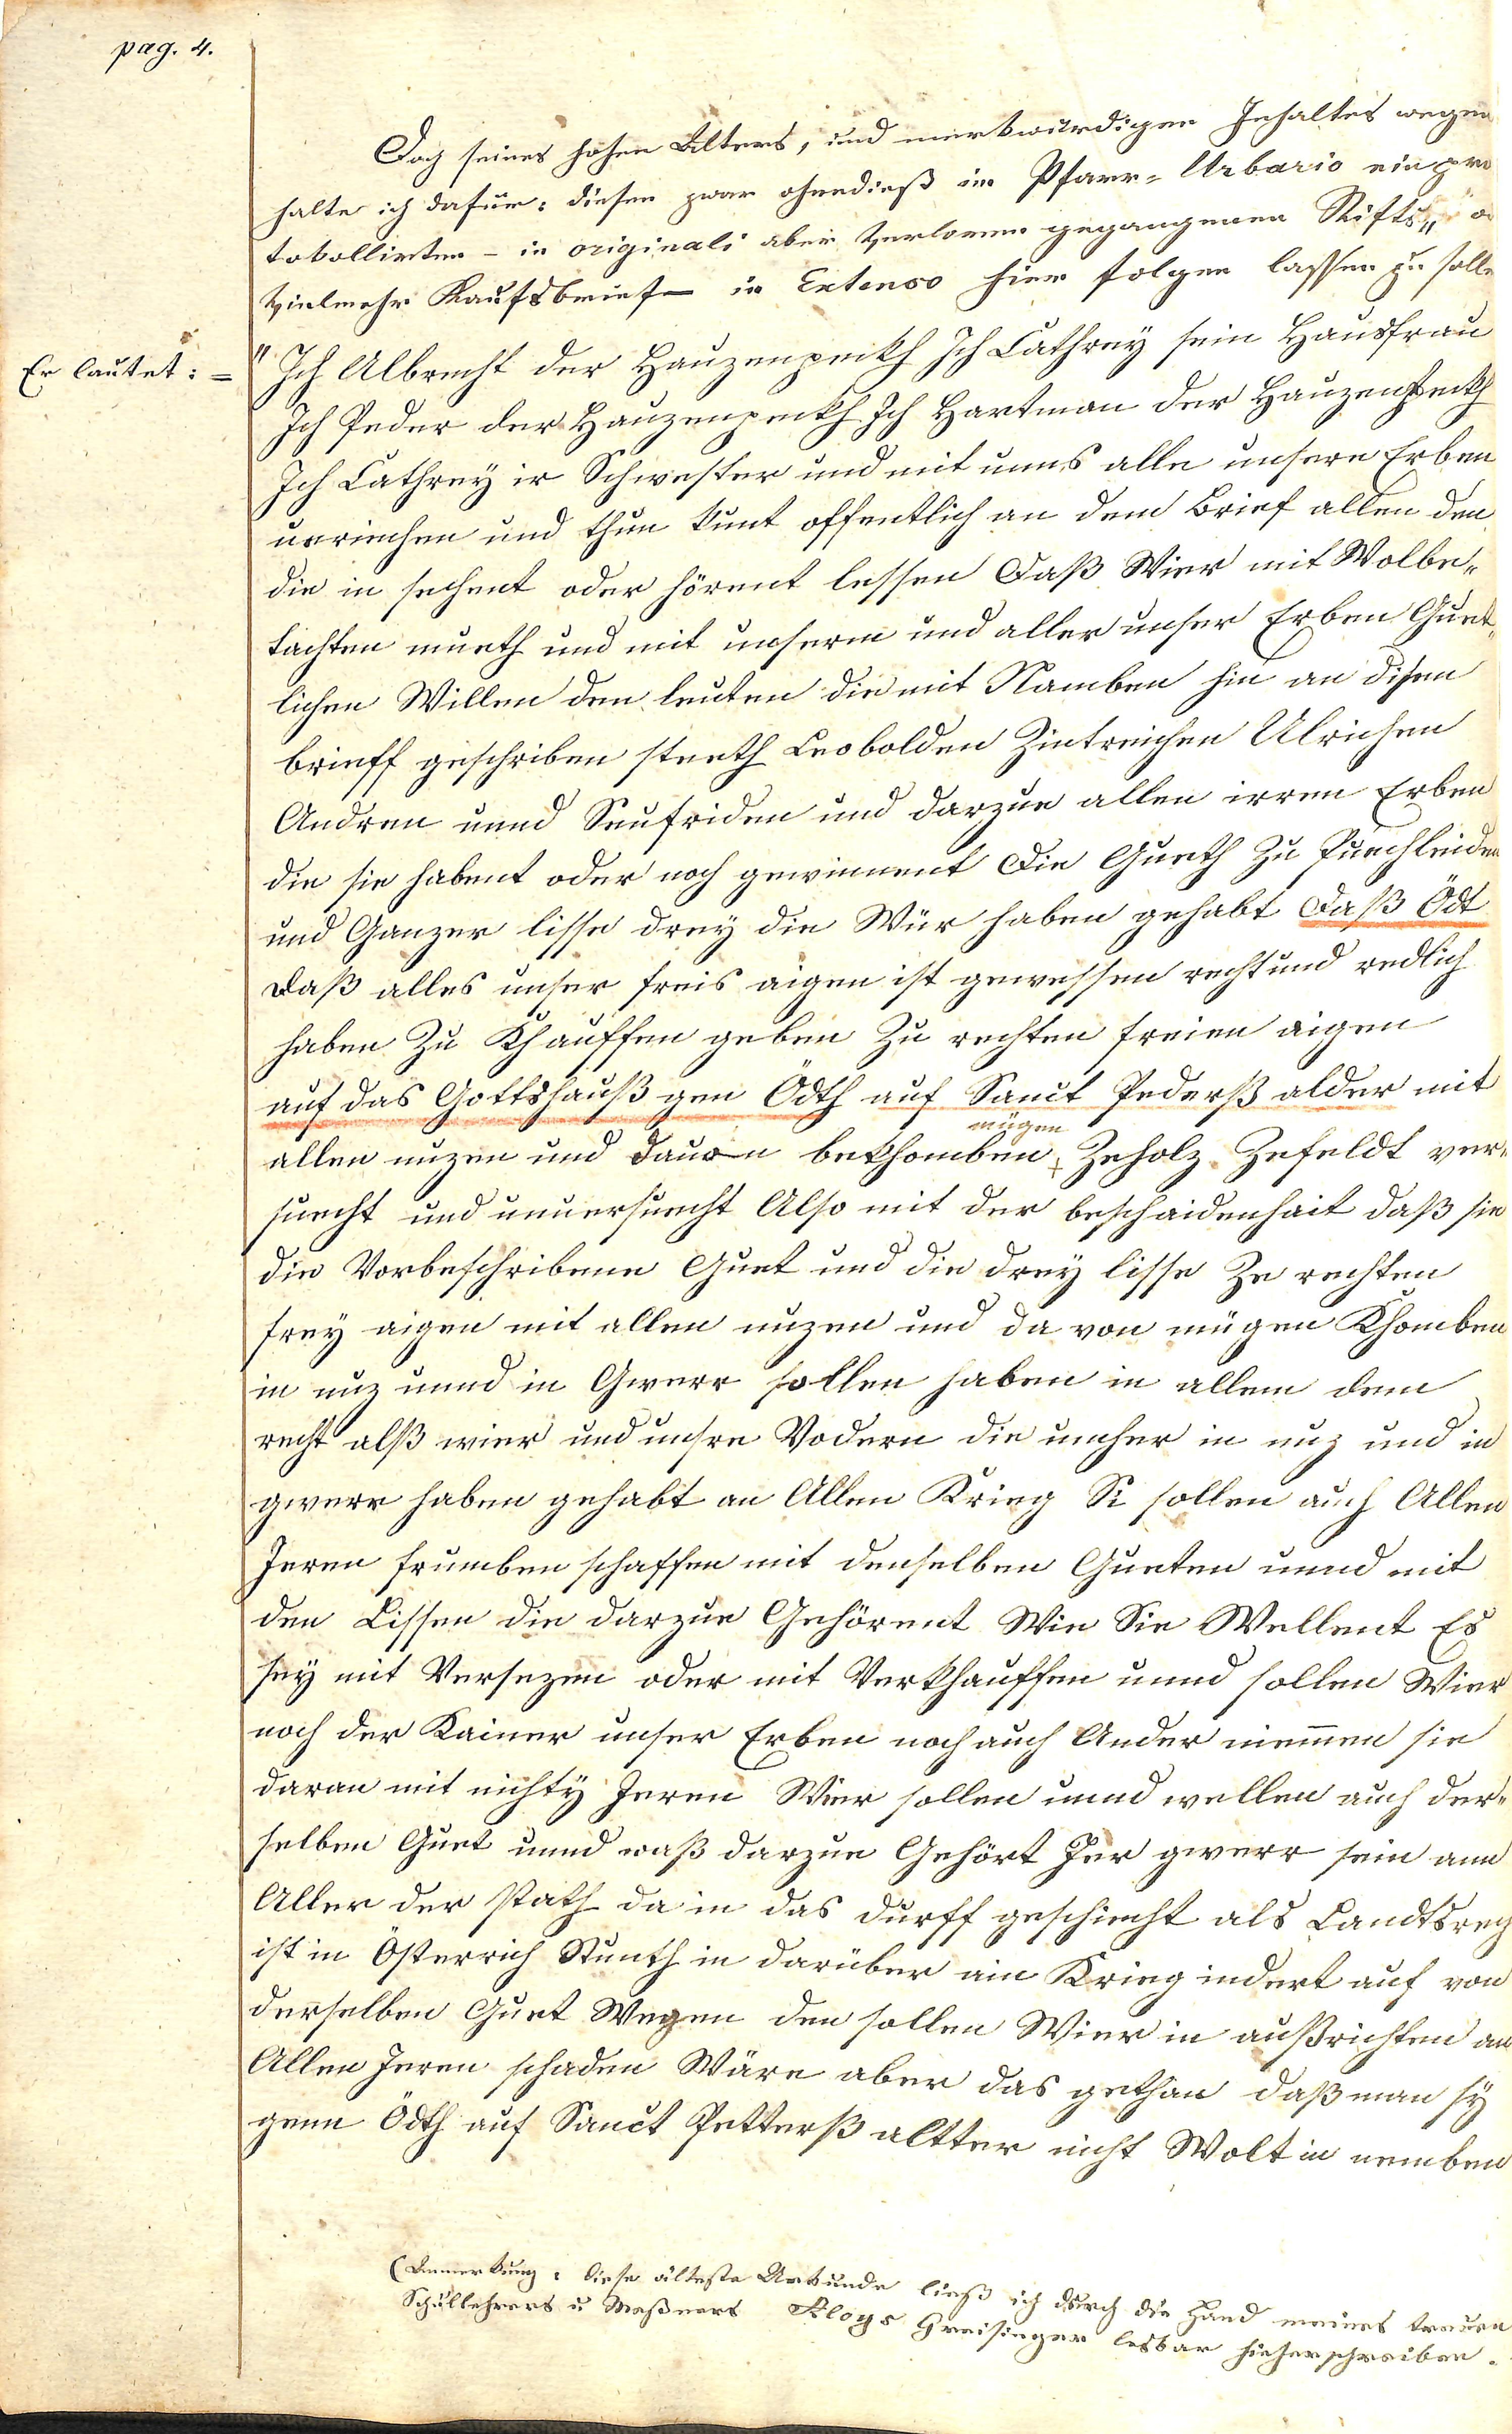 pag. 4.
Doch seines hohen Alters, und merkwürdigen Inhaltes wegen
halte ich dafür: diesen zwar ohnedieß im Pfarr-Urbario einpro
tokollirten – in originali aber verloren gegangenen Stifts„ o
vielmehr Kaufsbrief – in Extenso hier folgen lassen zu solle
Er lautet: =
" Ich Albrecht der Hauzenpeckh Ich Cathrey sein Hausfrau
Ich Peder der Hauzenpeckh Ich Hartman der Hauzenpeckh
Ich Cathrey ir Schwester und mit unns alle unsere Erben
ueriechen und thun kunt offentlich an dem Brief allen den
die in sechent oder hörent lessen Daß Wier mit Wolbe„
dachten mueth und mit unserm und aller unser Erben Guet„
lichen Willen den leuten die mit Namben hie an disen
brieff geschriben steeth Leobolden Dietreichen Ulrichen
Andren unnd Seufriden und darzue allen irren Erben
die sie habent oder noch gewinnent Die Gueth Zu Puechleiden
und Ganzer lisse drey die Wür haben gehabt Daß Ödt
Daß alles unser freis aigen ist gewessen recht und redlich
haben Zu Khauffen geben Zu rechten freien aigen
auf das Gottshauß gen Ödth auf Sanct Pederß alder mit
mügen
allen nuzen und Dauon bekhomben Zeholz Zefeldt ver„
suecht und unuersuecht Also mit der beschaidenhait daß sie
die Vorbeschribene Guet und die drey lisse Ze rechten
frey aigen mit allen nuzen und da von mügen Khomben
in nuz unnd in Gwerr sollen haben in allem dem
recht alß wier und unsre Vodern die uncher in nuz und in
gwerr haben gehabt an Allen Krieg Si sollen auch Allen
Jeren frumben schaffen mit denselben Gueten unnd mit
den Lissen die darzue Gehörent Wie Sie Wellent Es
sey mit Versezen oder mit Verkhauffen unnd sollen Wier
noch der Kainer unser Erben noch auch Ander niemen sie
daran mit nichty Jeren Wier sollen unnd wellen auch der„
selben Guet unnd waß darzue Gehört Jer gwerr sein ann
Aller der stath da in das durff geschiecht als Landtsrech
ist in Österrich Stuenth in darüber ain Krieg indert auf von
derselben Guet Wegen den sollen Wier in außrichten an
Allen Jeren schaden Wäre aber das gethan daß man sy
genn Ödth auf Sanct Petterß altter nicht Wolt in nemben
(Anmerkung: diese älteste Urkunde ließ ich durch die Hand meines treuen
Schullehrers u Meßners Aloys Greisinger lesbar hieherschreiben.